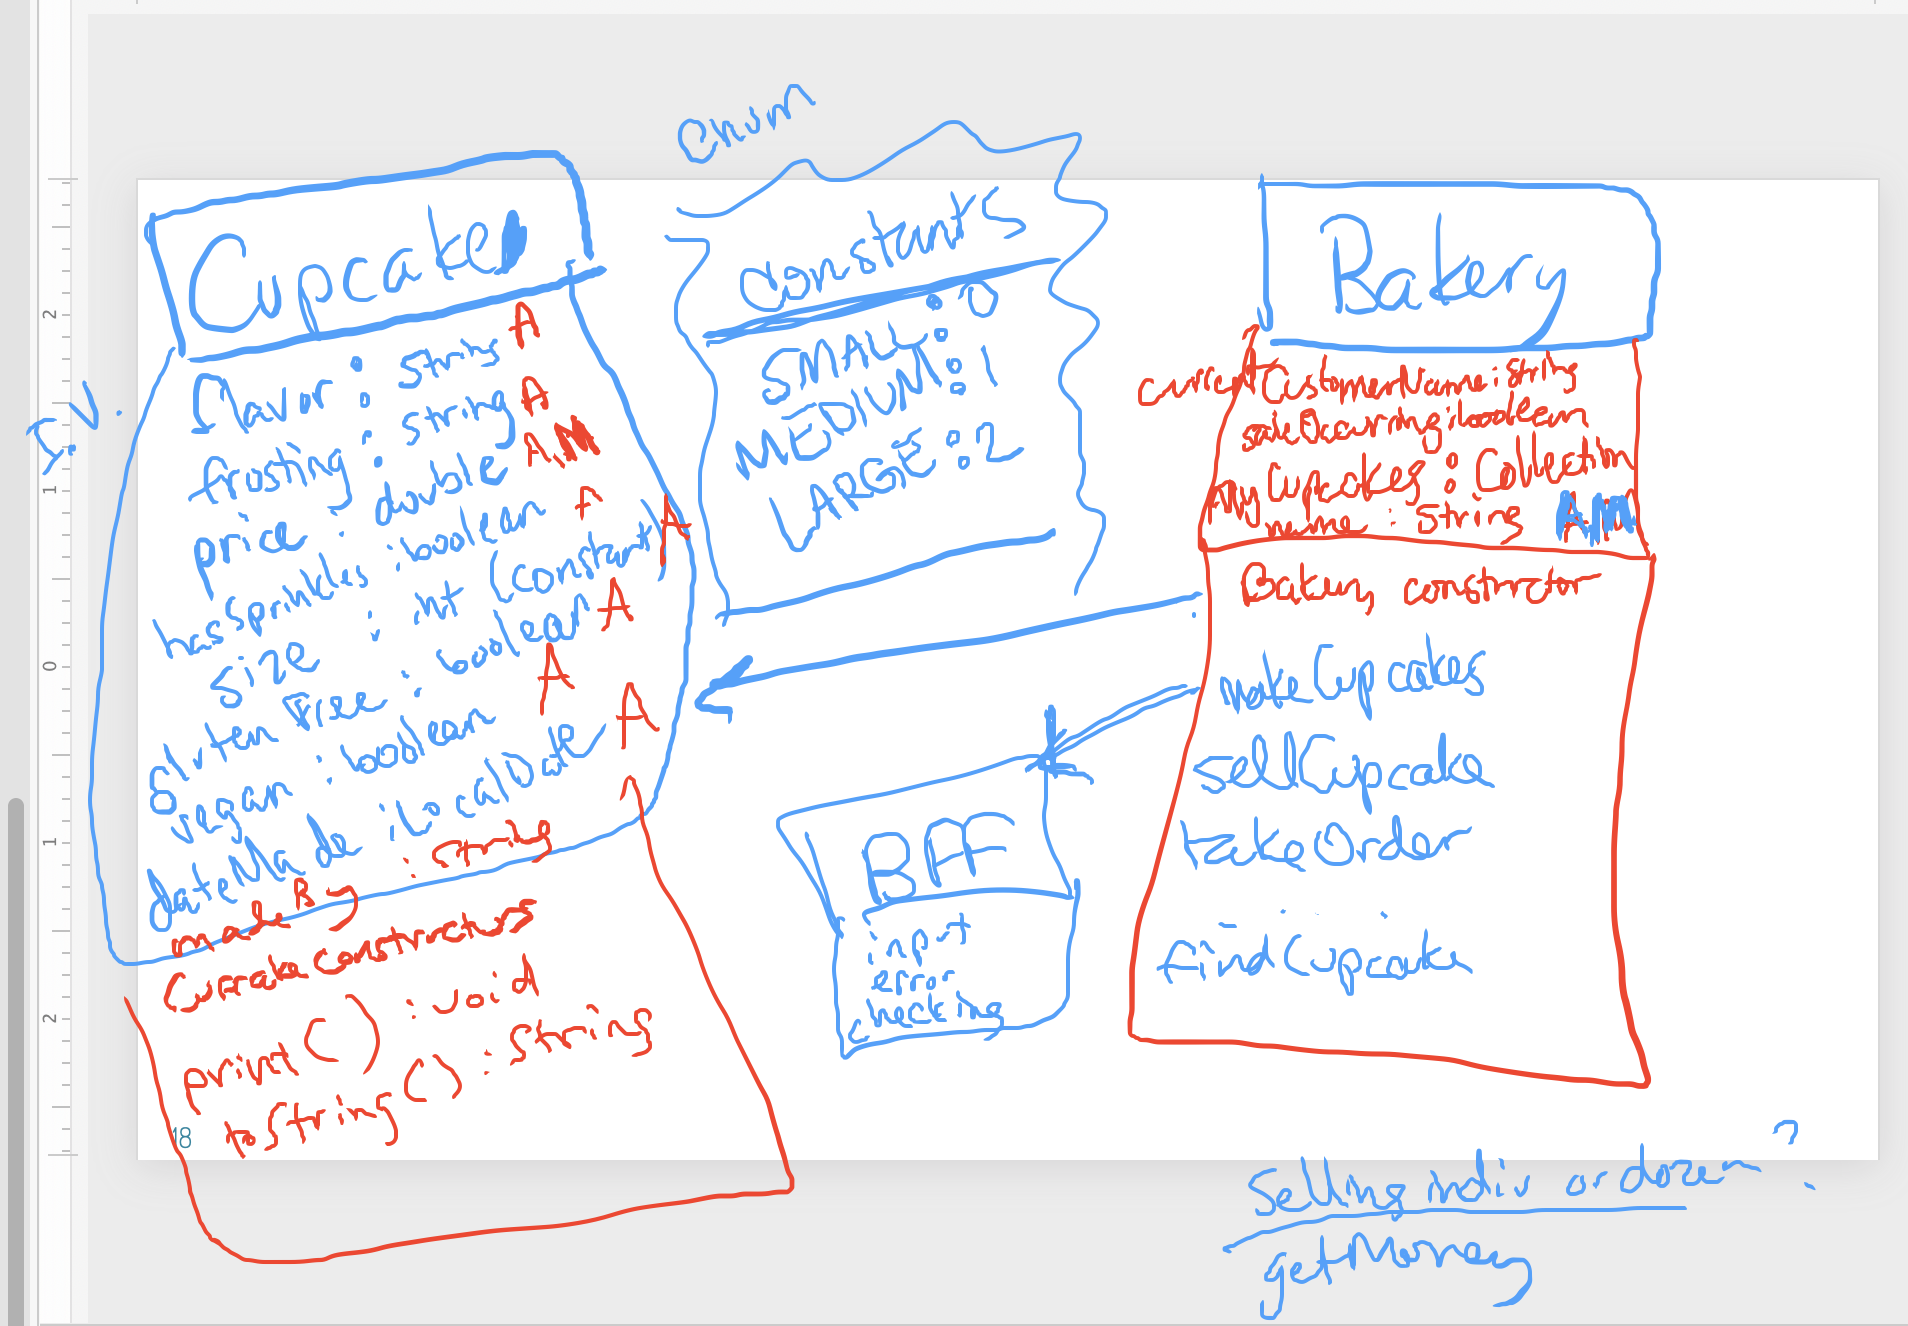 Enum
Cupcake
I.V.
flavor : string A
frosting : string A
price : double AM
hasSprinkles : boolean A
size : int (constant) A
glutenFree : boolean A
vegan : boolean A
dateMade : LocalDate A
madeBy : string A
Cupcake Constructors
print() : void
toString() : String
18
constants
SMALL : 0
MEDIUM : 1
LARGE : 2
BFF
input
error
checking
Bakery
currentCustomerName : string
saleOccurring : boolean
myCupcakes : Collection
name : String AM
Bakery constructor
makeCupcakes
sellCupcake
takeOrder
findCupcake
Selling indiv or dozen ?
getMoney
2
1
0
1
2